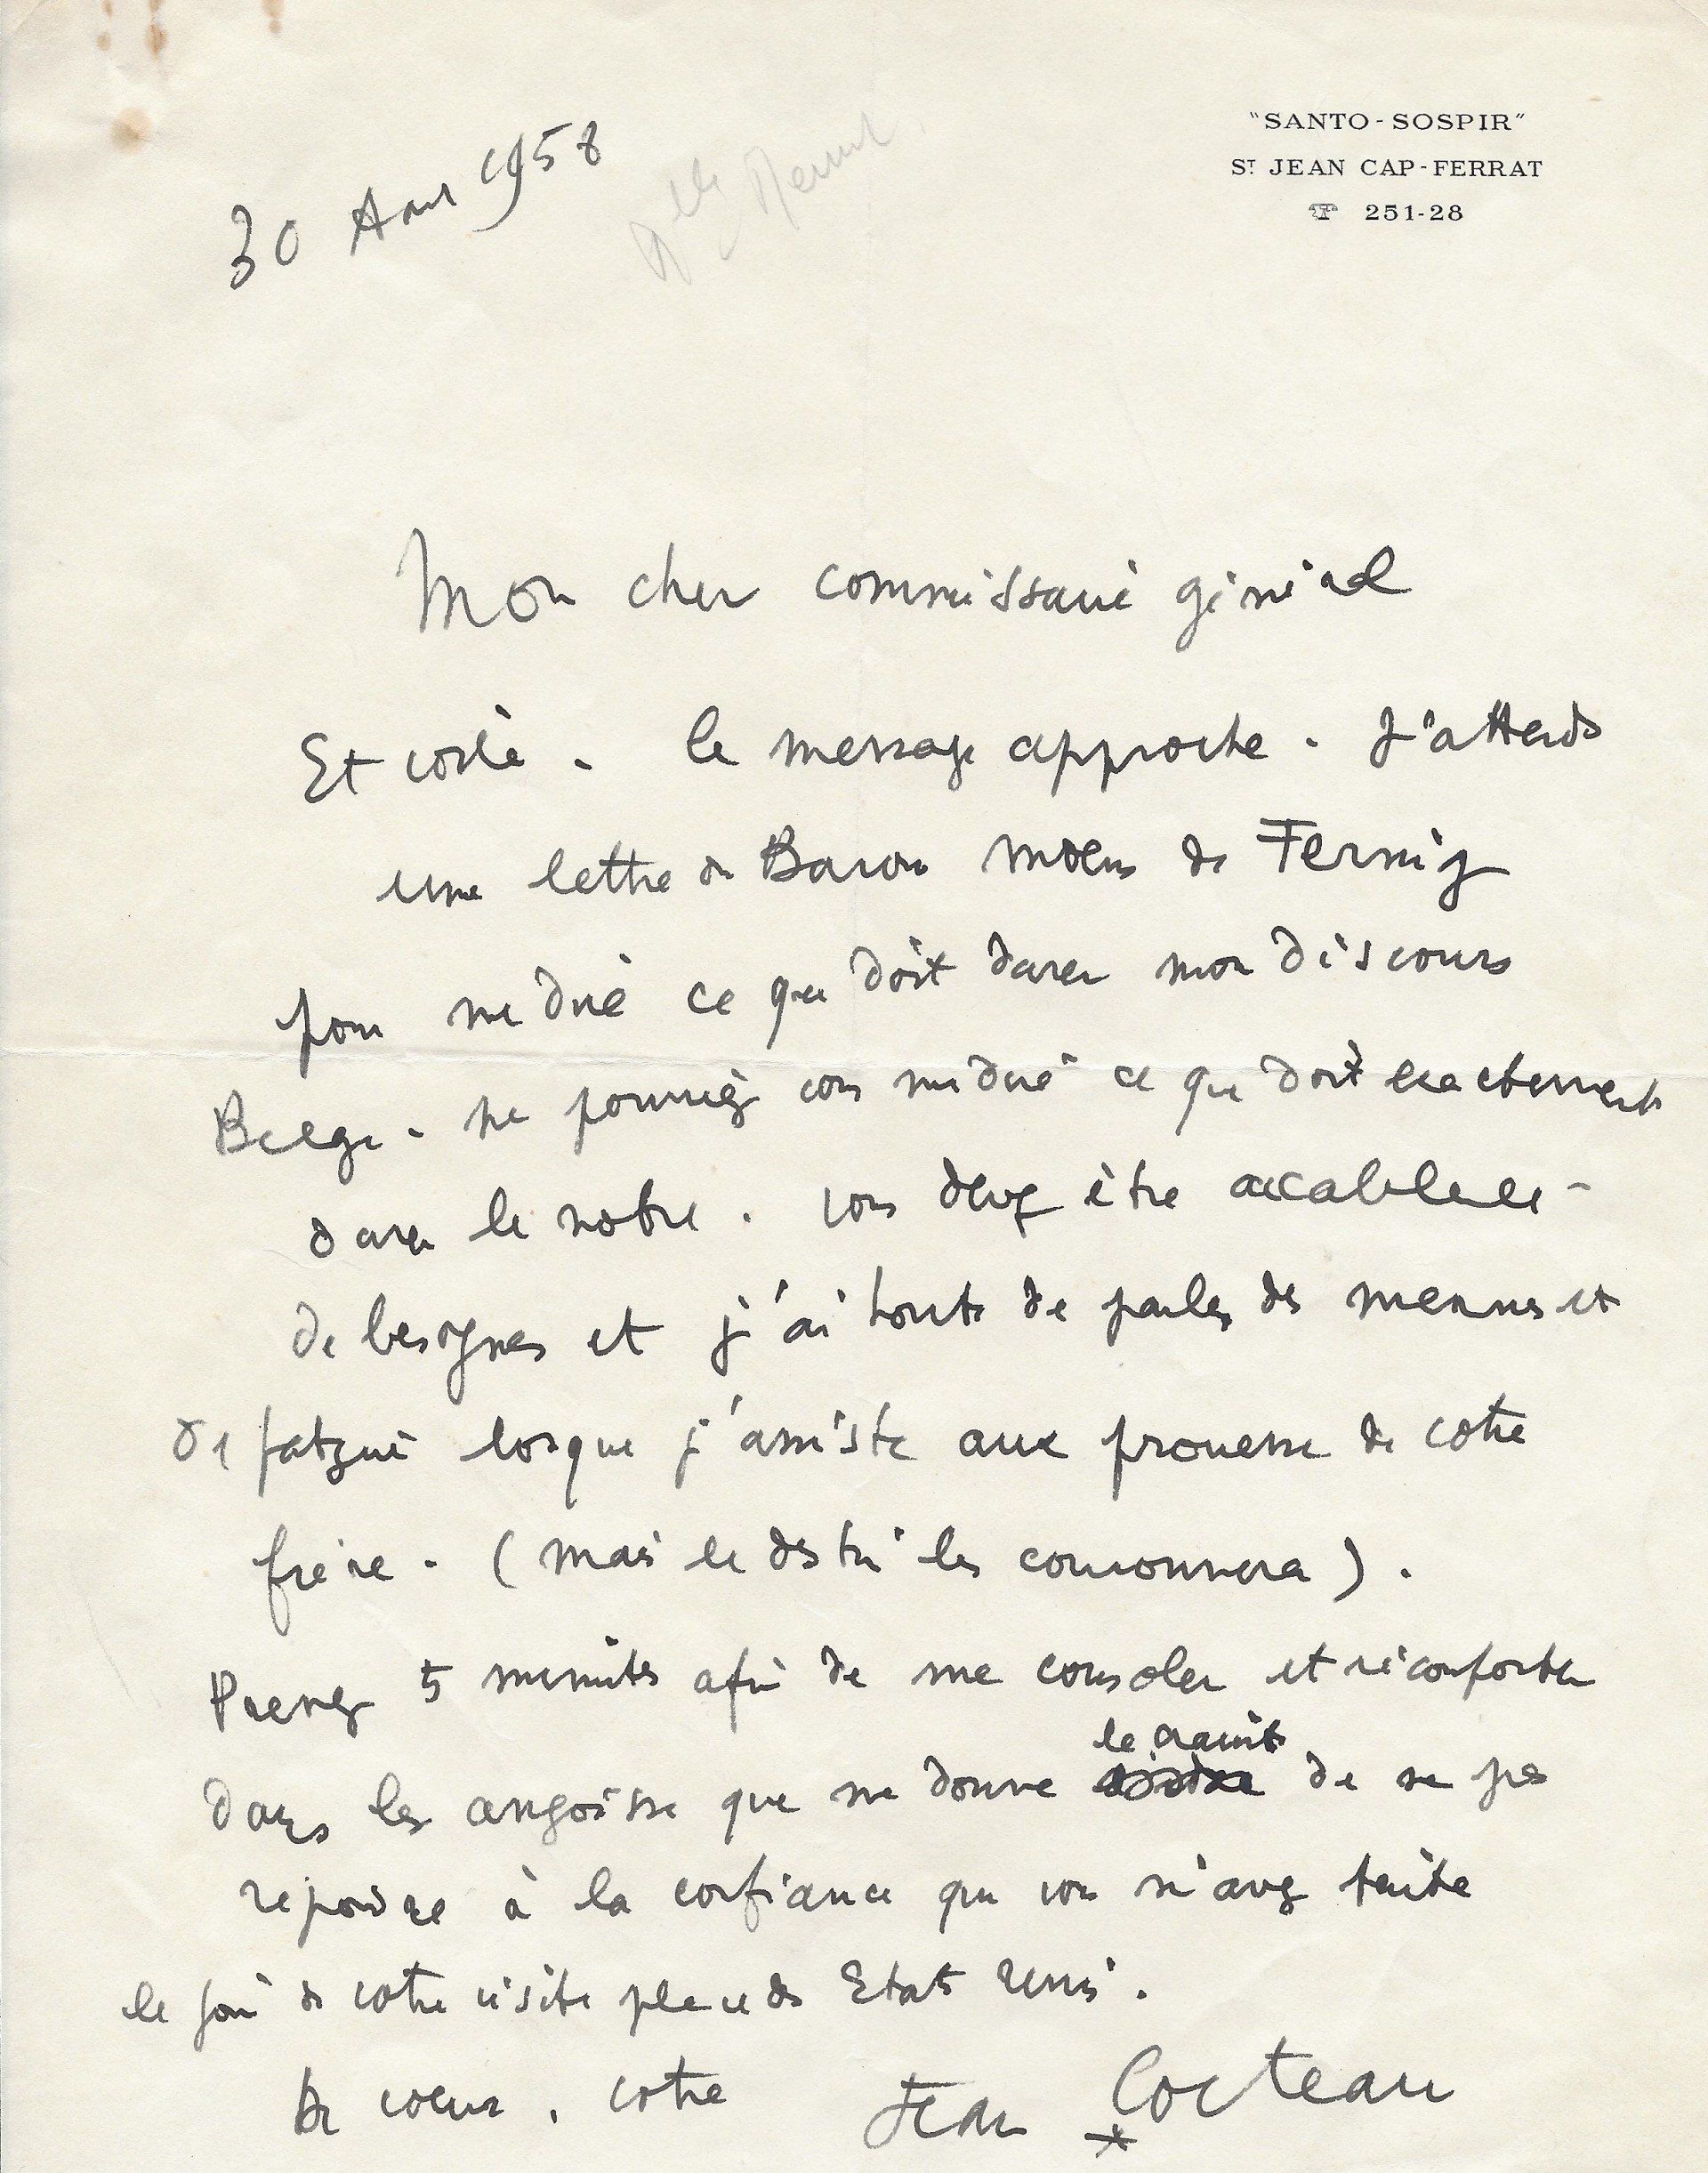 "SANTO-SOSPIR"
ST JEAN CAP-FERRAT
☎ 251-28
30 Aout 1958
Mon cher commissaire général
Et voilà. Le message approche. J'attends
une lettre du Baron Moens de Fernig
pour me dire ce que doit durer mon discours
Belge. ne pourriez vous me dire ce que doit exactement
durer le notre. vous devez être accablé
de besognes et j'ai honte de parler des miennes et
de fatigue lorsque j'assiste aux prouesses de votre
frère. (mais le destin les couronnera).
Prenez 5 minutes afin de me consoler et réconforter
dans les angoisses que me donne
la crainte
de ne pas
répondre à la confiance que vous m'avez faite
le jour de votre visite place des Etats Unis.
De cœur. votre Jean Cocteau
*